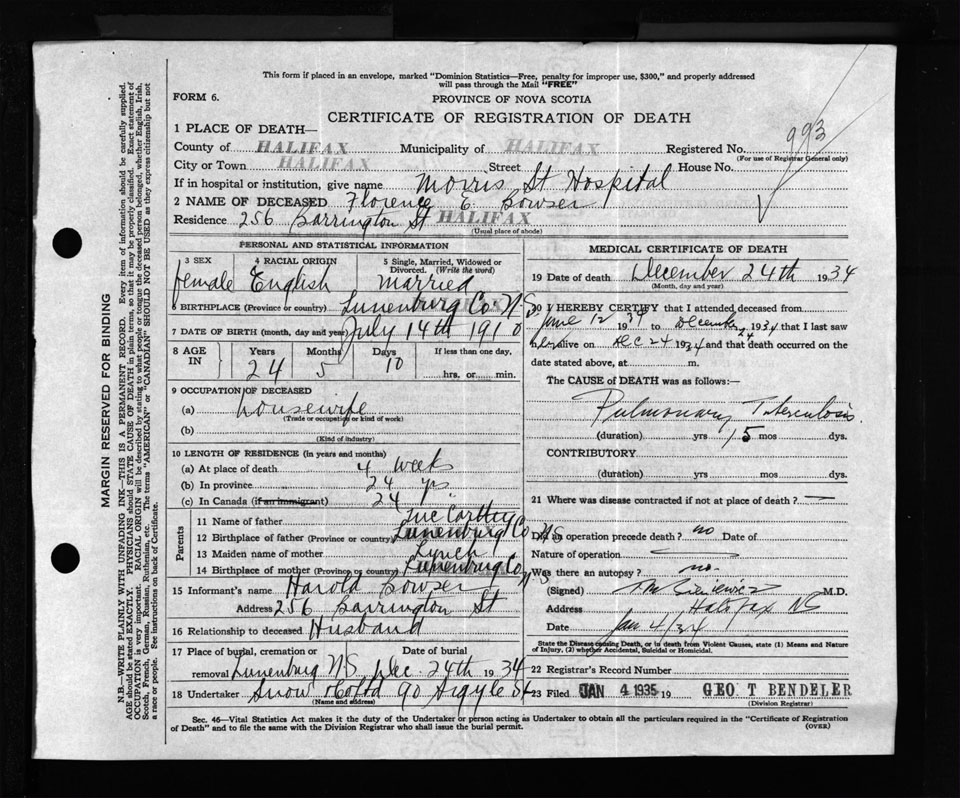 This form if placed in an envelope, marked "Dominion Statistics—Free, penalty for improper use, $300," and properly addressed
will pass through the Mail "FREE"
FORM 6.
PROVINCE OF NOVA SCOTIA
CERTIFICATE OF REGISTRATION OF DEATH
993
1 PLACE OF DEATH—
County of HALIFAX Municipality of HALIFAX Registered No.
(For use of Registrar General only)
City or Town HALIFAX Street House No.
If in hospital or institution, give name Morris St Hospital
2 NAME OF DECEASED Florence E. Bowser
Residence 256 Barrington St HALIFAX
(Usual place of abode)
PERSONAL AND STATISTICAL INFORMATION
3 SEX 4 RACIAL ORIGIN 5 Single, Married, Widowed or
Divorced. (Write the word)
female English Married
6 BIRTHPLACE (Province or country) Lunenburg Co N.S
7 DATE OF BIRTH (month, day and year) July 14th 1910
8 AGE IN Years Months Days If less than one day,
24 5 10 hrs. or min.
9 OCCUPATION OF DECEASED
(a) housewife
(Trade or occupation or kind of work)
(b)
(Kind of industry)
10 LENGTH OF RESIDENCE (in years and months)
(a) At place of death 4 weeks
(b) In province 24 yrs.
(c) In Canada (if an immigrant) 24
Parents
11 Name of father
12 Birthplace of father (Province or country) Lunenburg Co N.S
13 Maiden name of mother Lynch
14 Birthplace of mother (Province or country) Lunenburg Co N-S
15 Informant's name Harold Bowser
Address 256 Barrington St
16 Relationship to deceased Husband
17 Place of burial, cremation or Date of burial
removal Lunenburg NS Dec. 24th 1934
18 Undertaker Snow & Co Ltd 90 Argyle St
(Name and address)
MEDICAL CERTIFICATE OF DEATH
19 Date of death December 24th 1934
(Month, day and year)
20 I HEREBY CERTIFY that I attended deceased from
June 12 1934 to December 24 1934 that I last saw
her alive on Dec 24 1934 and that death occurred on the
date stated above, at m.
The CAUSE of DEATH was as follows:—
Pulmonary Tuberculosis
(duration) yrs 15 mos dys.
CONTRIBUTORY
(duration) yrs mos dys.
21 Where was disease contracted if not at place of death? —
Did an operation precede death? no Date of
Nature of operation
Was there an autopsy? no.
(Signed) M.D.
Address Halifax NS
Date Jan 4/34
State the Disease causing Death, or in deaths from Violent Causes, state (1) Means and Nature
of Injury, (2) whether Accidental, Suicidal or Homicidal.
22 Registrar's Record Number
23 Filed JAN 4 1935 19 GEO T BENDELER
(Division Registrar)
Sec. 46—Vital Statistics Act makes it the duty of the Undertaker or person acting as Undertaker to obtain all the particulars required in the "Certificate of Registration
of Death" and to file the same with the Division Registrar who shall issue the burial permit.
(OVER)
MARGIN RESERVED FOR BINDING
N.B.—WRITE PLAINLY WITH UNFADING INK—THIS IS A PERMANENT RECORD. Every item of information should be carefully supplied.
AGE should be stated EXACTLY. PHYSICIANS should STATE CAUSE OF DEATH in plain terms, so that it may be properly classified. Exact statement of
OCCUPATION is very important. RACIAL ORIGIN will be described by stating to what people or tongue the deceased person belonged, whether English, Irish,
Scotch, French, German, Russian, Ruthenian, etc. The terms "AMERICAN" or "CANADIAN" SHOULD NOT BE USED as they express citizenship but not
a race or people. See instructions on back of Certificate.